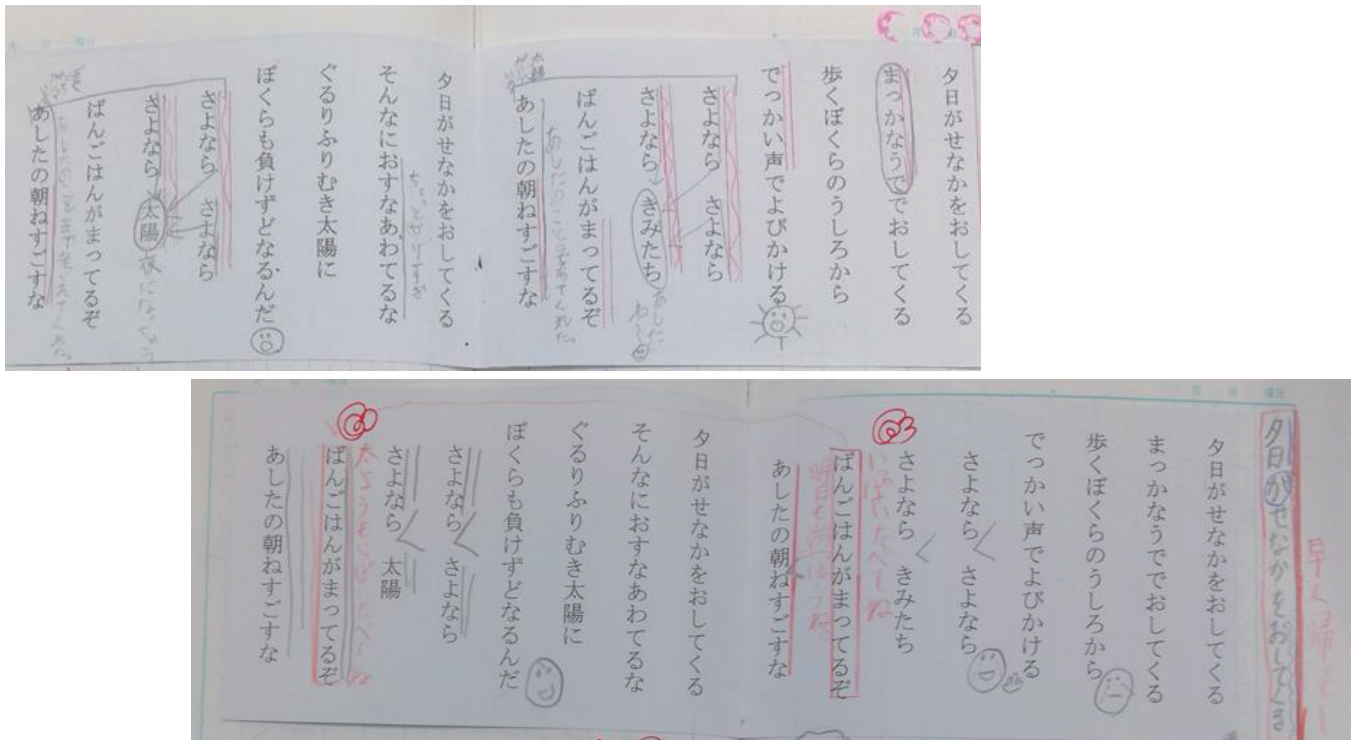 夕日がせなかをおしてくる
まっかなうででおしてくる
歩くぼくらのうしろから
でっかい声でよびかける
さよなら さよなら
さよなら きみたち
ばんごはんがまってるぞ
あしたの朝ねすごすな
夕日がせなかをおしてくる
そんなにおすなあわてるな
ぐるりふりむき太陽に
ぼくらも負けずどなるんだ
さよなら さよなら
さよなら 太陽
ばんごはんがまってるぞ
あしたの朝ねすごすな
夕日がせなかをおしてくる
夕日がせなかをおしてくる
まっかなうででおしてくる
歩くぼくらのうしろから
でっかい声でよびかける
さよなら さよなら
さよなら きみたち
いっぱいたべてね
ばんごはんがまってるぞ
あしたの朝ねすごすな
夕日がせなかをおしてくる
そんなにおすなあわてるな
ぐるりふりむき太陽に
ぼくらも負けずどなるんだ
さよなら さよなら
さよなら 太陽
ばんごはんがまってるぞ
あしたの朝ねすごすな